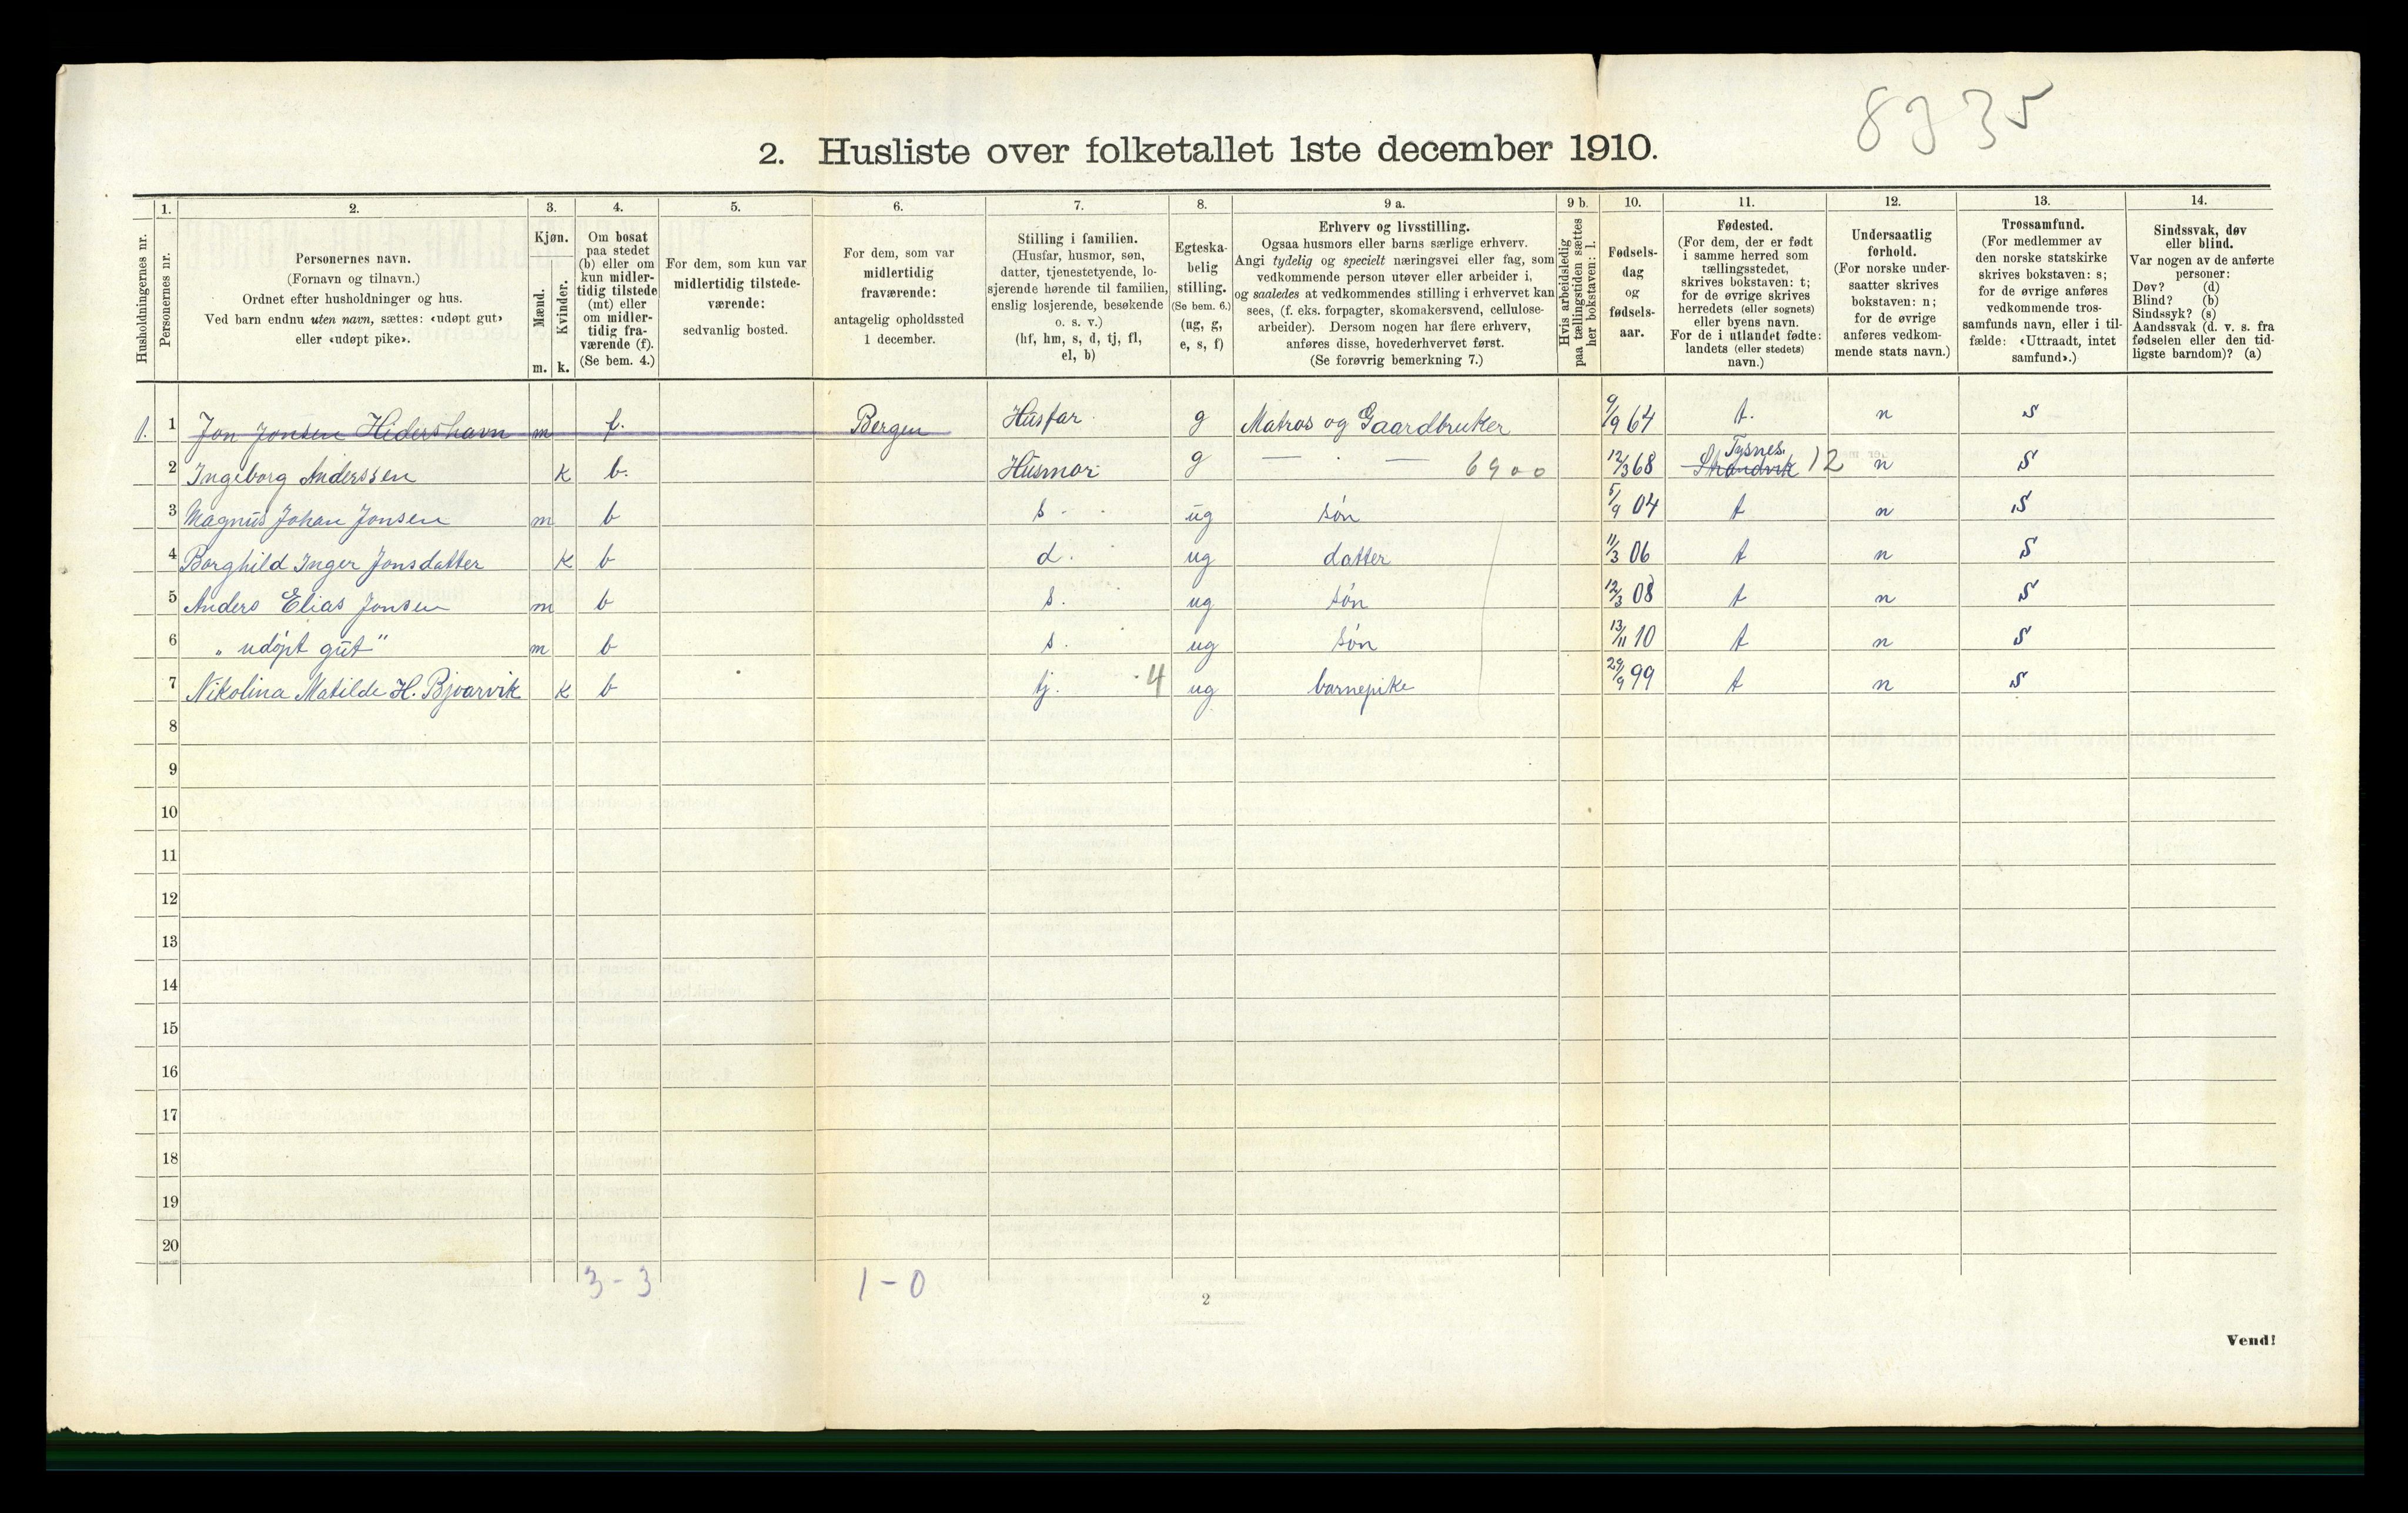 8935
2. Husliste over folketallet 1ste december 1910.
Husholdningernes nr.
1. Personernes nr.
2. Personernes navn.
(Fornavn og tilnavn.)
Ordnet efter husholdninger og hus.
Ved barn endnu uten navn, sættes: «udøpt gut»
eller «udøpt pike».
3. Kjøn.
Mænd. m.
Kvinder. k.
4. Om bosat
paa stedet
(b) eller om
kun midler-
tidig tilstede
(mt) eller
om midler-
tidig fra-
værende (f).
(Se bem. 4.)
5. For dem, som kun var
midlertidig tilstede-
værende:
sedvanlig bosted.
6. For dem, som var
midlertidig
fraværende:
antagelig opholdssted
1 december.
7. Stilling i familien.
(Husfar, husmor, søn,
datter, tjenestetyende, lo-
sjerende hørende til familien,
enslig losjerende, besøkende
o. s. v.)
(hf, hm, s, d, tj, fl,
el, b)
8. Egteska-
belig
stilling.
(Se bem. 6.)
(ug, g,
e, s, f)
9 a. Erhverv og livsstilling.
Ogsaa husmors eller barns særlige erhverv.
Angi tydelig og specielt næringsvei eller fag, som
vedkommende person utøver eller arbeider i,
og saaledes at vedkommendes stilling i erhvervet kan
sees, (f. eks. forpagter, skomakersvend, cellulose-
arbeider). Dersom nogen har flere erhverv,
anføres disse, hovederhvervet først.
(Se forøvrig bemerkning 7.)
9 b. Hvis arbeidsledig
paa tællingstiden sættes
her bokstaven: l.
10. Fødsels-
dag
og
fødsels-
aar.
11. Fødested.
(For dem, der er født
i samme herred som
tællingsstedet,
skrives bokstaven: t;
for de øvrige skrives
herredets (eller sognets)
eller byens navn.
For de i utlandet fødte:
landets (eller stedets)
navn.)
12. Undersaatlig
forhold.
(For norske under-
saatter skrives
bokstaven: n;
for de øvrige
anføres vedkom-
mende stats navn.)
13. Trossamfund.
(For medlemmer av
den norske statskirke
skrives bokstaven: s;
for de øvrige anføres
vedkommende tros-
samfunds navn, eller i til-
fælde: «Uttraadt, intet
samfund».)
14. Sindssvak, døv
eller blind.
Var nogen av de anførte
personer:
Døv? (d)
Blind? (b)
Sindssyk? (s)
Aandssvak (d. v. s. fra
fødselen eller den tid-
ligste barndom)? (a)
1. 1 Jon Jonsen Hidershavn m f. Bergen Husfar g Matros og Gaardbruker 9/9 64 t. n s
2 Ingeborg Anderssen k b. Husmor g — · — 6900 12/3 68 Strandvik Tysnes 12 n s
3 Magnus Johan Jonsen m b s. ug søn 5/9 04 t n s
4 Borghild Inger Jonsdatter k b d. ug datter 11/3 06 t n s
5 Anders Elias Jonsen m b s. ug søn 12/3 08 t n s
6 „udøpt gut" m b s. ug søn 13/11 10 t n s
7 Nikolina Matilde H. Bjvarvik k b tj. 4 ug barnepike 29/9 99 t n s
8
9
10
11
12
13
14
15
16
17
18
19
20
3-3 1-0
2
Vend!